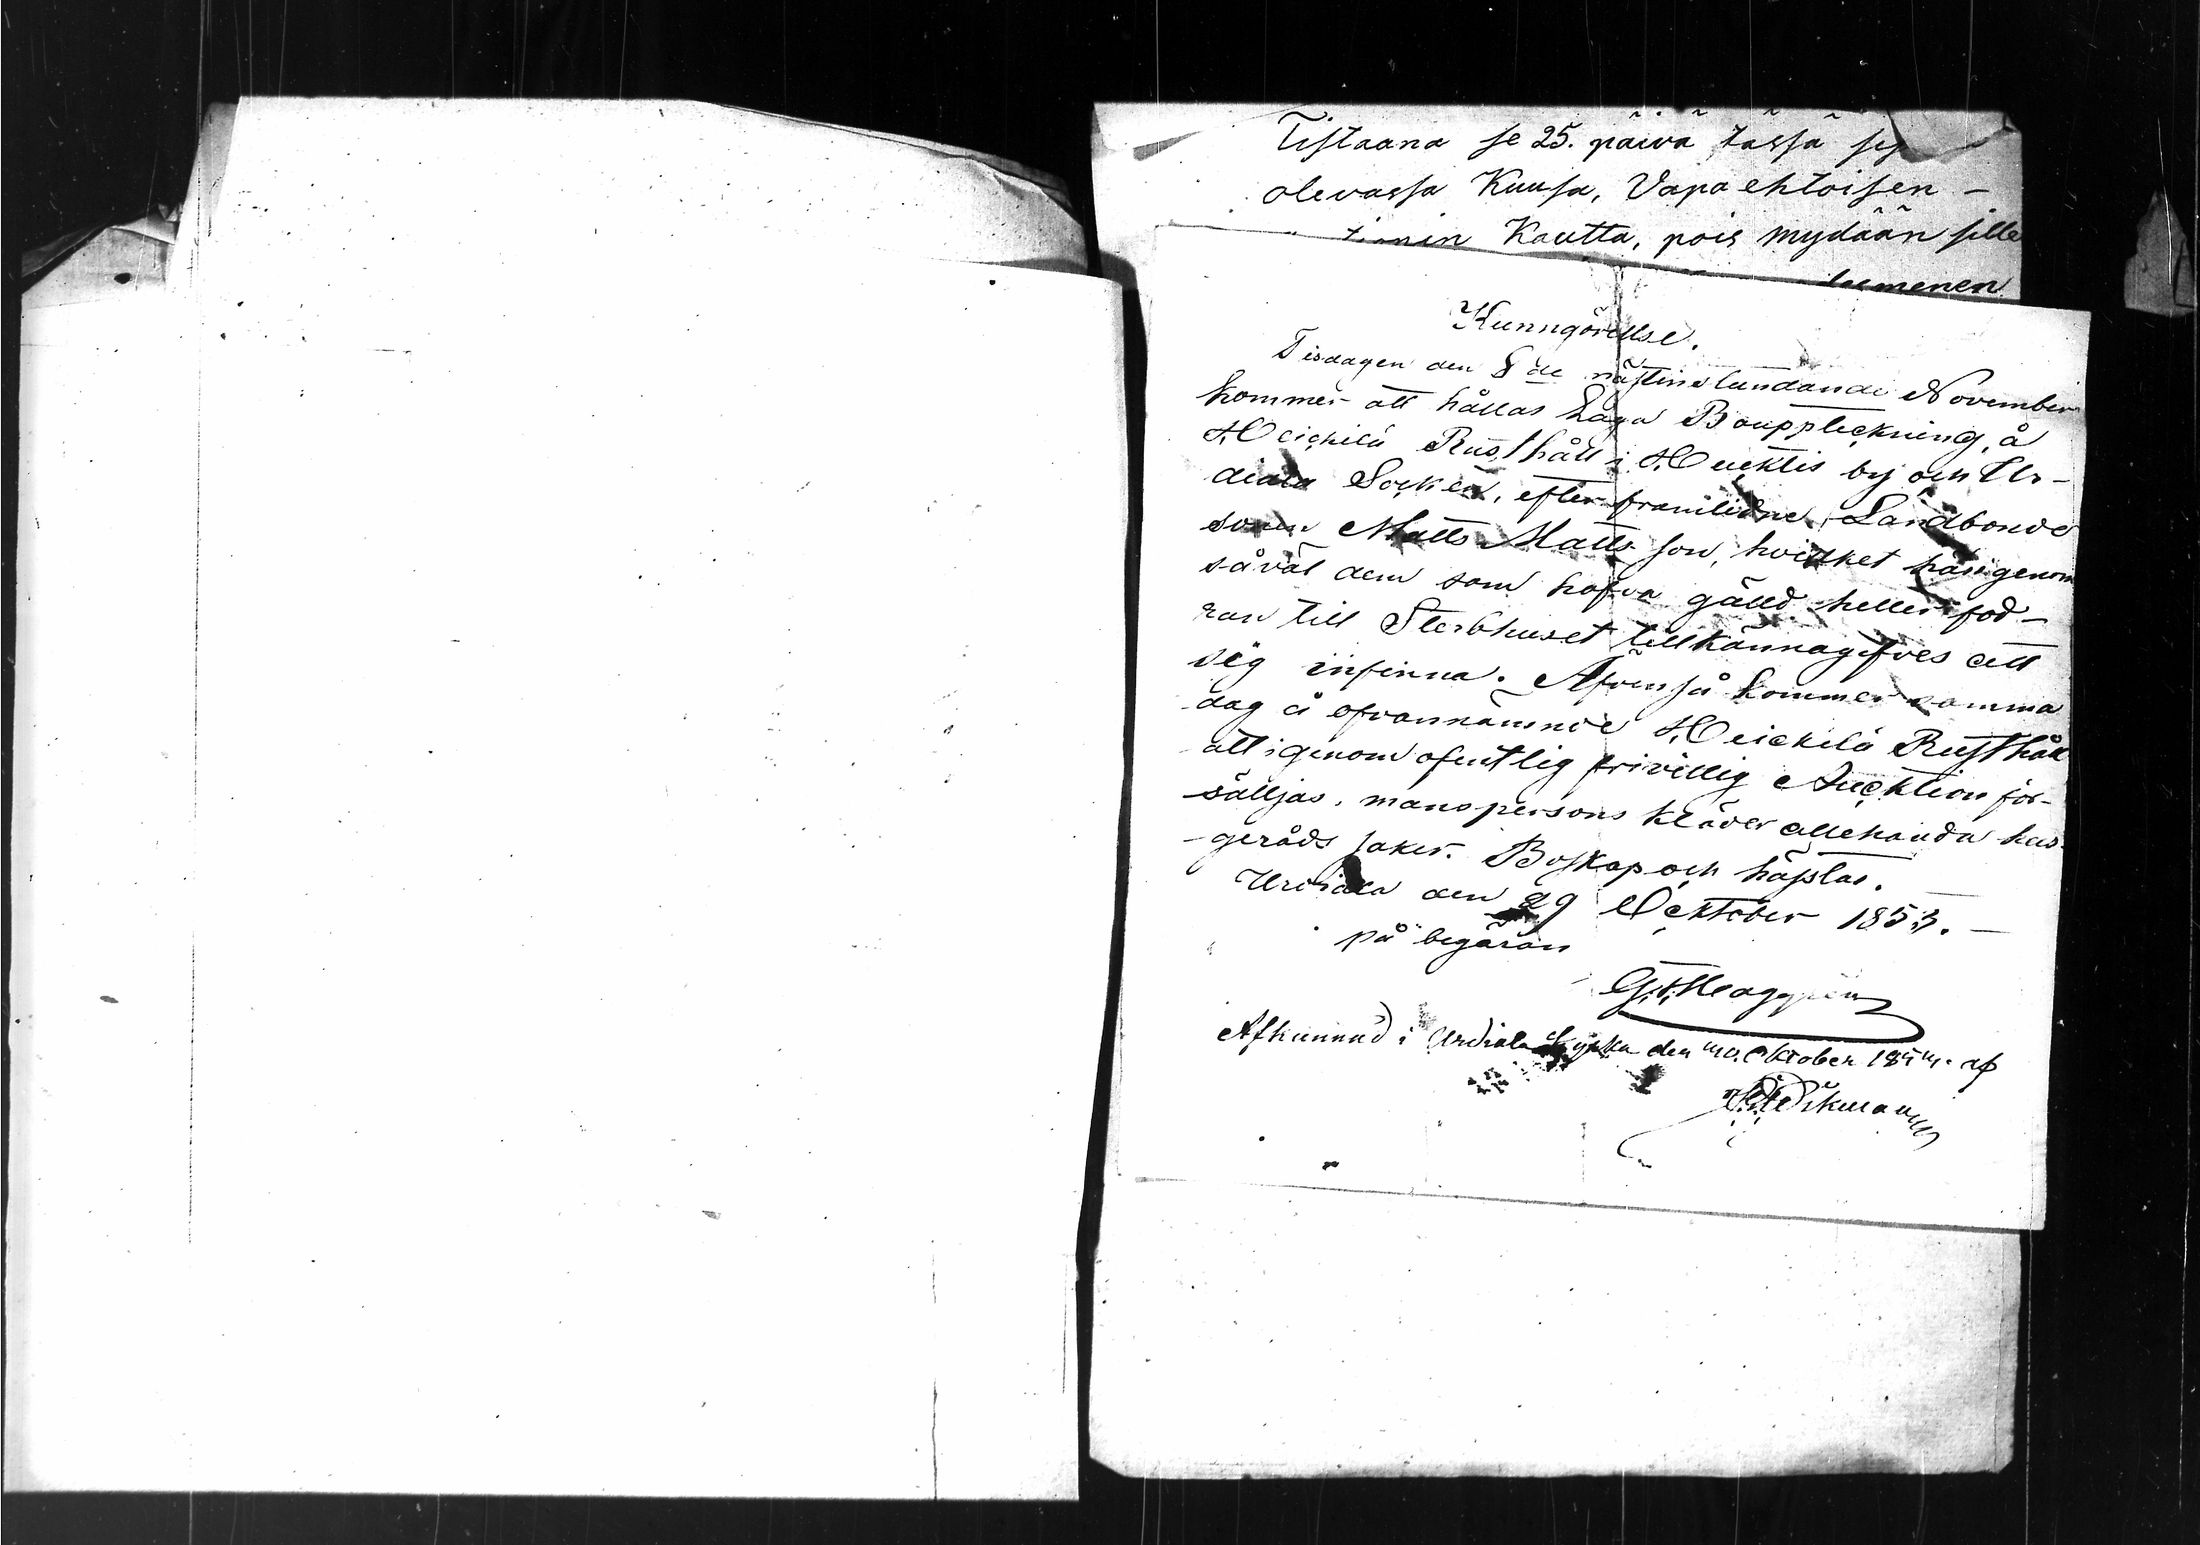 Tistaana se 25. päivä tässä
olevassa Kuusa, Vapaehtoisen –
Kautta, pois mydään sille
Kunngörellse.
Tisdagen den 8de nästinstundande November
kommer att hållas Laga Bouppteckning, å
Heickilä Rusthåll i Hucktis by och Ur-
diala Socken, efter framlidne Landbonde
sonen Matts Matts son, hvilket härigenom
såväl dem som hafva gälld heller fod-
ran till Sterbhuset tillkännagifves att
sig infinna. Äfvenså kommer samma
dag å ofvannämnde Heickilä Rusthåll
att igenom ofentlig frivillig Aucktion för-
sälljas, manspersons kläder allehanda hus-
geråds saker. Boskap och hästar.
Urdiala den 29 Ocktober 1853.
på begäran
Afkunnad i Urdiala Kyrka den Oktober af